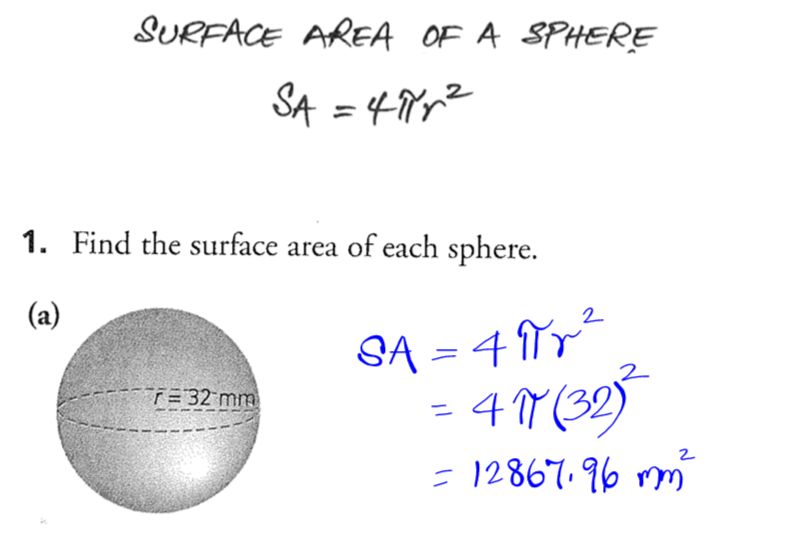 SURFACE AREA OF A SPHERE
SA = 4πr²
1. Find the surface area of each sphere.
(a)
r = 32 mm
SA = 4πr²
= 4π(32)²
= 12867.96 mm²